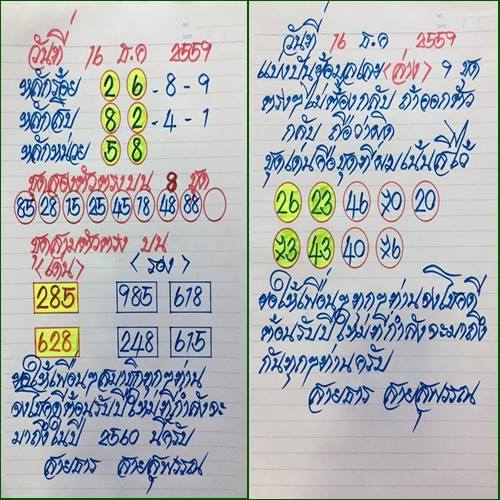 วันที่ 16 ธ.ค 2559
หลักร้อย 2 6 - 8 - 9
หลักสิบ 8 2 - 4 - 1
หลักหน่วย 5 8
ชุดสองตัวตรงบน 8 ชุด
85 28 15 25 45 18 48 88
ชุดสามตัวตรง บน
<เด่น> <รอง>
285 985 618
628 248 615
ขอให้เพื่อนๆสมาชิกทุกๆท่าน
จงโชคดีต้อนรับปีใหม่ที่กำลังจะ
มาถึงในปี 2560 นี้ครับ
สายธาร สายสุพรรณ
วันที่ 16 ธ.ค 2559
แบ่งปันข้อมูลเลข <ล่าง> 9 ชุด
ตรงๆไม่ต้องกลับ ถ้าออกตัว
กลับ ถือว่าผิด
ชุดเด่นคือชุดที่ผมเน้นสีไว้
26 23 46 70 20
73 43 40 76
ขอให้เพื่อนๆทุกๆท่านจงโชคดี
ต้อนรับปีใหม่ที่กำลังจะมาถึง
กันทุกๆท่านครับ
สายธาร สายสุพรรณ